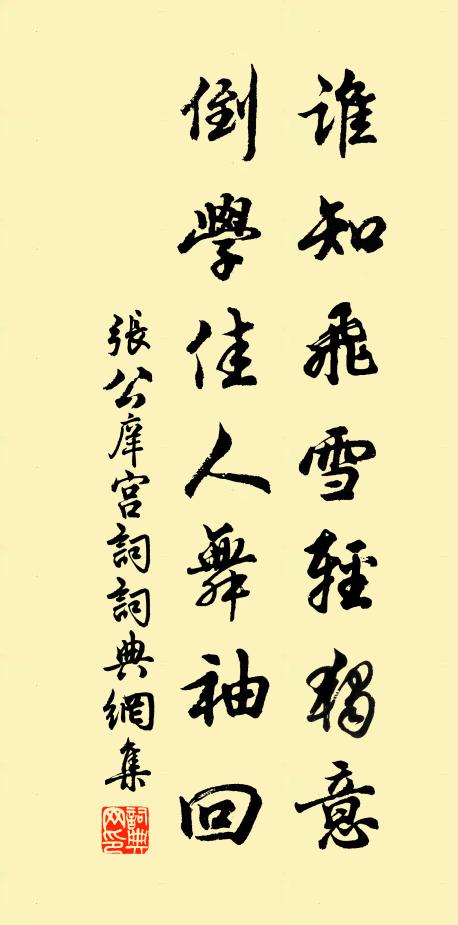 誰知飛雪輕獨意
倒學佳人舞袖回
張公庠宮詞詞典網集
詞典网印